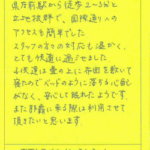 県庁前駅から徒歩2～3分と
立地抜群で、国際通りへの
アクセスも簡単でした
スタッフの方々の対応も温かく、
とても快適に過ごせました
子供達は畳の上に布団を敷いて
寝たのでベッドのように落ちる心配し
がなく、安心して眠れたようです
また那覇に来る際は利用させて
頂きたいと思います